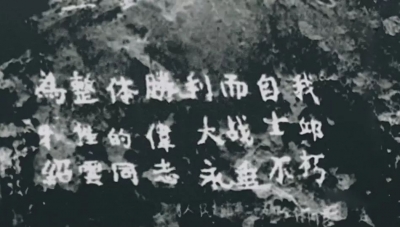 為整体勝利而自我
牺牲的偉大战士邱
紹雲同志永垂不朽